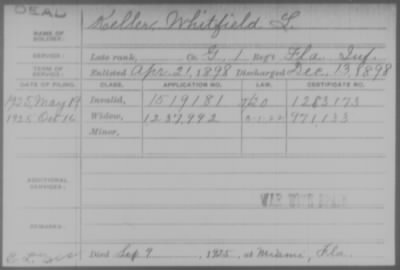 DEAD
NAME OF SOLDIER: Keller, Whitfield L.
SERVICE: Late rank, Co. G, 1 Reg't Fla Inf.
TERM OF SERVICE: Enlisted Apr. 21, 1898 Discharged Dec. 13, 1898
DATE OF FILING. CLASS. APPLICATION NO. LAW. CERTIFICATE NO.
1925, May 19 Invalid, 1519181 1283173
1925 Oct 16 Widow, 1237992 971133
Minor,
ADDITIONAL SERVICES:
WAR WITH SPAIN
REMARKS:
Died Sep 9, 1925, at Miami, Fla.